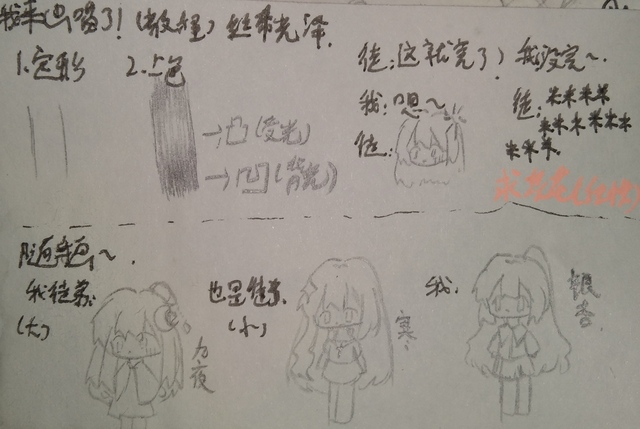 我来也喵了！(教程) 丝带光泽.
1.定形 2.上色
→凸(受光)
→凹(背光)
徒:这就完了？我没完~.
我:嗯~
徒:米米米米
米米米米米米
米米米
徒:
随便画画~.
我徒弟:
(大)
为夜
也是徒弟:
(小)
寒.
我: